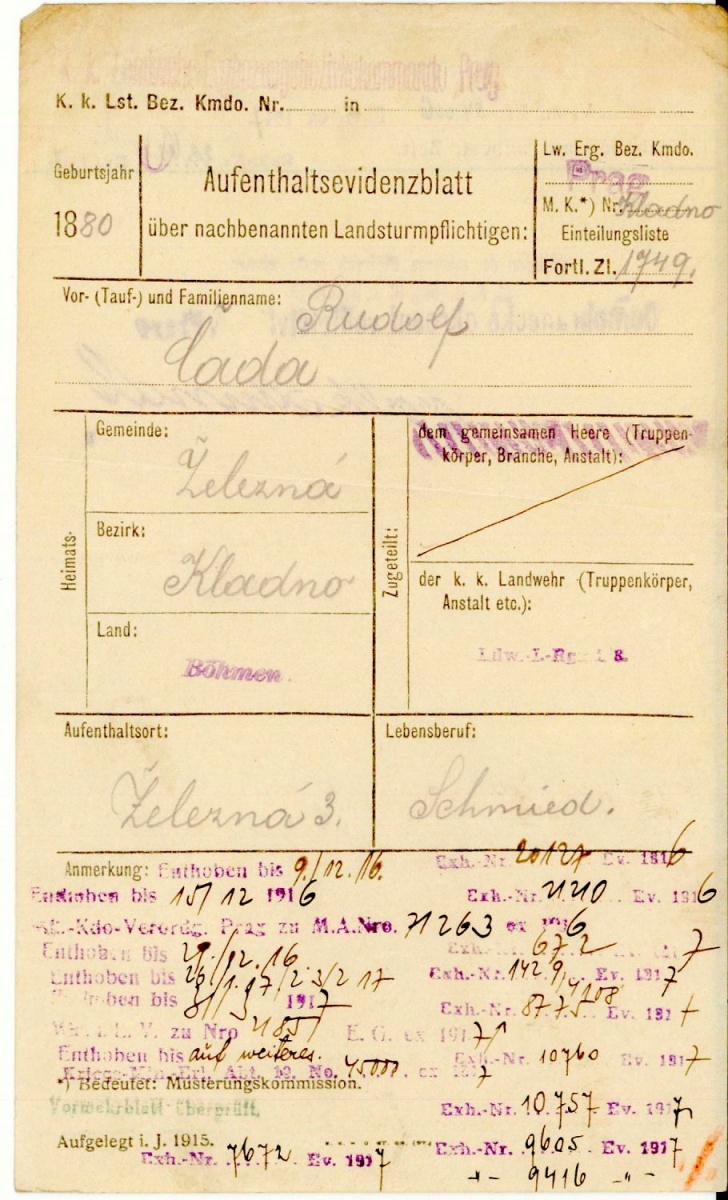 Prag
K. k. Lst. Bez. Kmdo. Nr. in
Geburtsjahr
1880
Aufenthaltsevidenzblatt
über nachbenannten Landsturmpflichtigen:
Lw. Erg. Bez. Kmdo.
Prag
M. K.*) Nr. Kladno
Einteilungsliste
Fortl. Zl. 1749.
Vor- (Tauf-) und Familienname: Rudolf
Čada
Heimats-
Gemeinde:
Železná
Bezirk:
Kladno
Land:
Böhmen.
Zugeteilt:
dem gemeinsamen Heere (Truppen-
körper, Branche, Anstalt):
der k. k. Landwehr (Truppenkörper,
Anstalt etc.):
Ldw.-I.-Rgmt. 8.
Aufenthaltsort:
Železná 3.
Lebensberuf:
Schmied.
Anmerkung: Enthoben bis 9./12.16. Exh.-Nr. 20127 Ev. 1916
Enthoben bis 15/12 1916 Exh.-Nr. 21210 Ev. 1916
Kdo-Verordg. Prag zu M.A.Nro. 71263 ex 1916
Enthoben bis 29./12.16 672 7
Enthoben bis Exh.-Nr. 1429 Ev. 1917
Enthoben bis 31/5 1917 4108
Exh.-Nr. 8775 Ev. 1917
L. V. zu Nro E. G. ex 1917
Enthoben bis auf weiteres. Exh.-Nr. 10760 Ev. 1917
Kriegs-Min.-Erl. Abt. 10. No. 45000 ex 1917
*) Bedeutet: Musterungskommission.
Vormerkblatt überprüft. Exh.-Nr. 10757 Ev. 1917
Aufgelegt i. J. 1915. Exh.-Nr. 9605 Ev. 1917
Exh.-Nr. 7672 Ev. 1917
-"- 9416 -"-